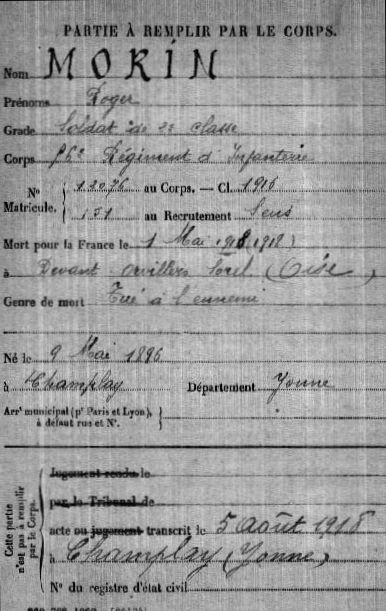 PARTIE À REMPLIR PAR LE CORPS.
Nom MORIN
Prénoms Roger
Grade Soldat de 2e classe
Corps Régiment d'Infanterie
No Matricule. 12076 au Corps. — Cl. 1916
151 au Recrutement Sens
Mort pour la France le 1 Mai 1918 (1918)
à Devant Orvillers Sorel (Oise)
Genre de mort Tué à l'ennemi
Né le 9 Mai 1896
à Champlay Département Yonne
Arrt municipal (pr Paris et Lyon), à défaut rue et No.
Cette partie n'est pas à remplir par le Corps.
Jugement rendu le
par le Tribunal de
acte ou jugement transcrit le 5 août 1918
à Champlay (Yonne)
No du registre d'état civil